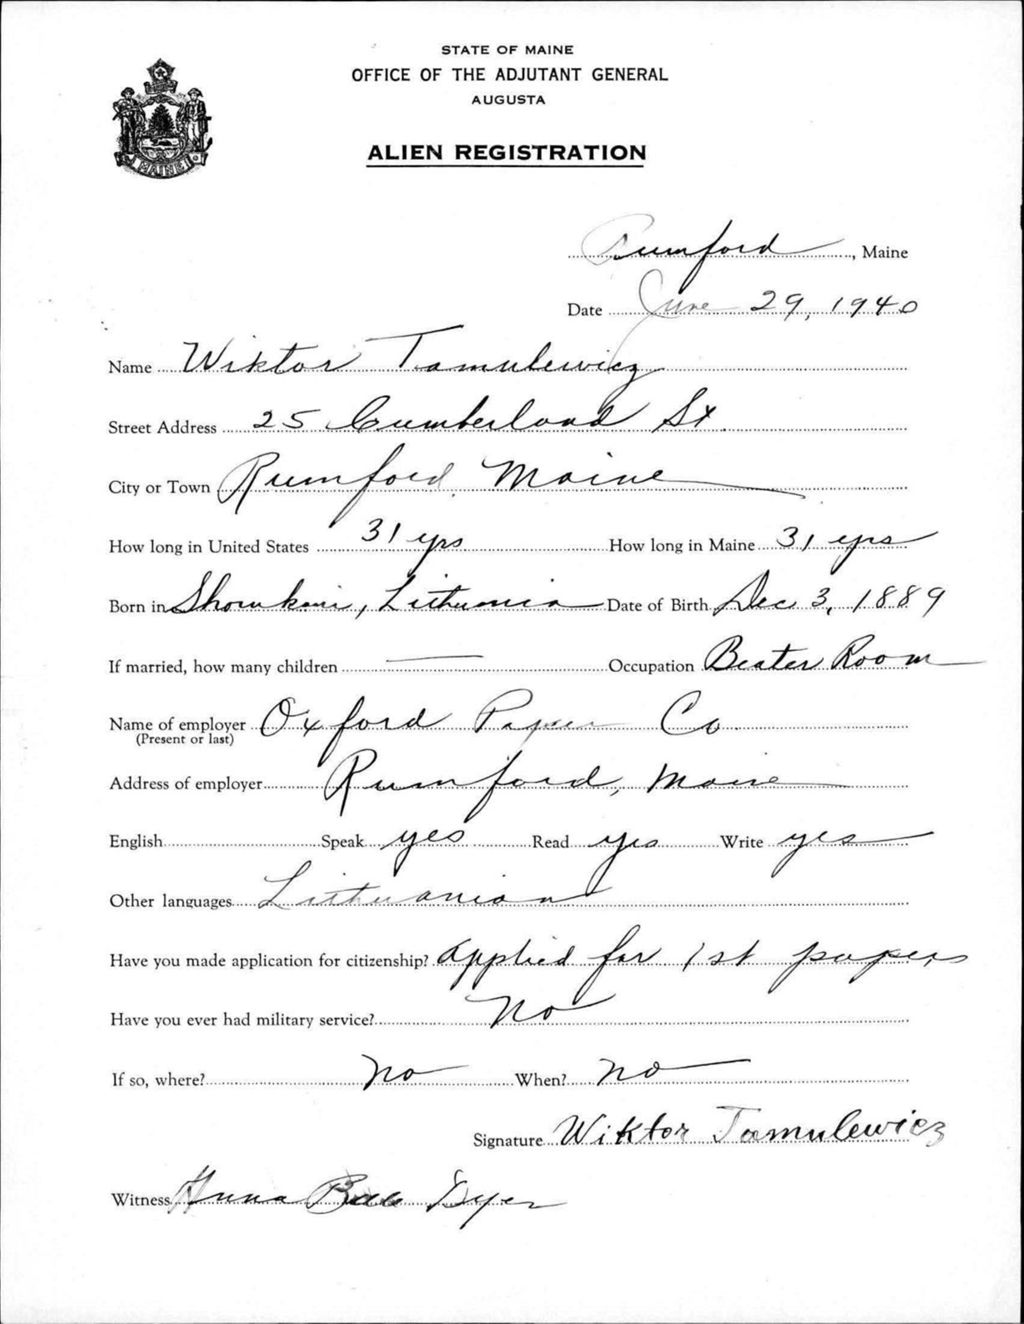 STATE OF MAINE
OFFICE OF THE ADJUTANT GENERAL
AUGUSTA
ALIEN REGISTRATION
MAINE
Rumford, Maine
Date June 29, 1940
Name Wiktor Tamulewicz
Street Address 25 Cumberland St.
City or Town Rumford, Maine
How long in United States 31 yrs How long in Maine 31 yrs
Born in Lithuania Date of Birth Dec 3, 1889
If married, how many children — Occupation Beater Room
Name of employer Oxford Paper Co
(Present or last)
Address of employer Rumford, Maine
English Speak yes Read yes Write yes
Other languages Lithuanian
Have you made application for citizenship? applied for 1st papers
Have you ever had military service? No
If so, where? No When? no
Signature Wiktor Tamulewicz
Witness Anna Dyer